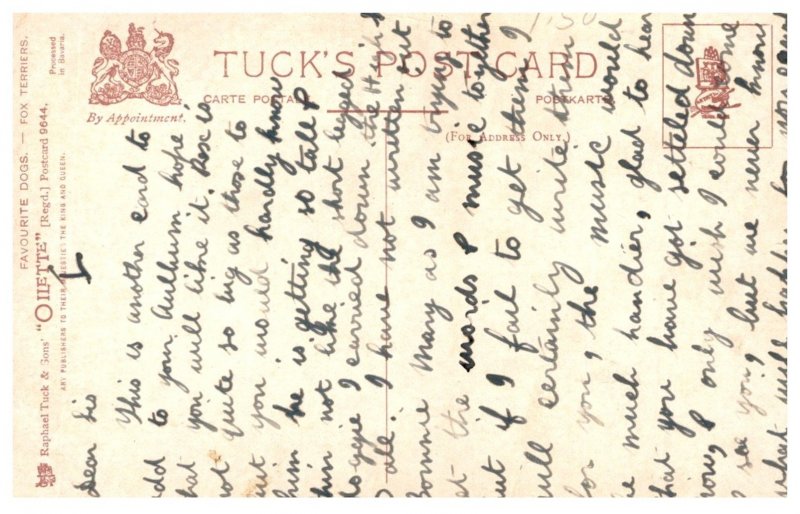 FAVOURITE DOGS. — FOX TERRIERS.
Processed
in Bavaria.
Raphael Tuck & Sons' "OILETTE" [Regd.] Postcard 9644.
ART PUBLISHERS TO THEIR MAJESTIES THE KING AND QUEEN.
By Appointment.
TUCK'S POST CARD
CARTE POSTALE
POSTKARTE
(FOR ADDRESS ONLY.)
1.50
Dear Sis
This is another card to
dd to your Aulbum hope
hat you will like it. Rose is
not quite so big as those to
ut you would hardly know
him he is getting so tall &
him not like the short legged
doggie I carried down the High S
ale. I have not written out
Bonnie Mary as I am trying to
et the words & music together
ut if I fail to get them I
will certainly write them
for you, the music would
e much handier, glad to hear
hat you have got setteled down
now, & only wish I could come
& see you, but we never know
what will